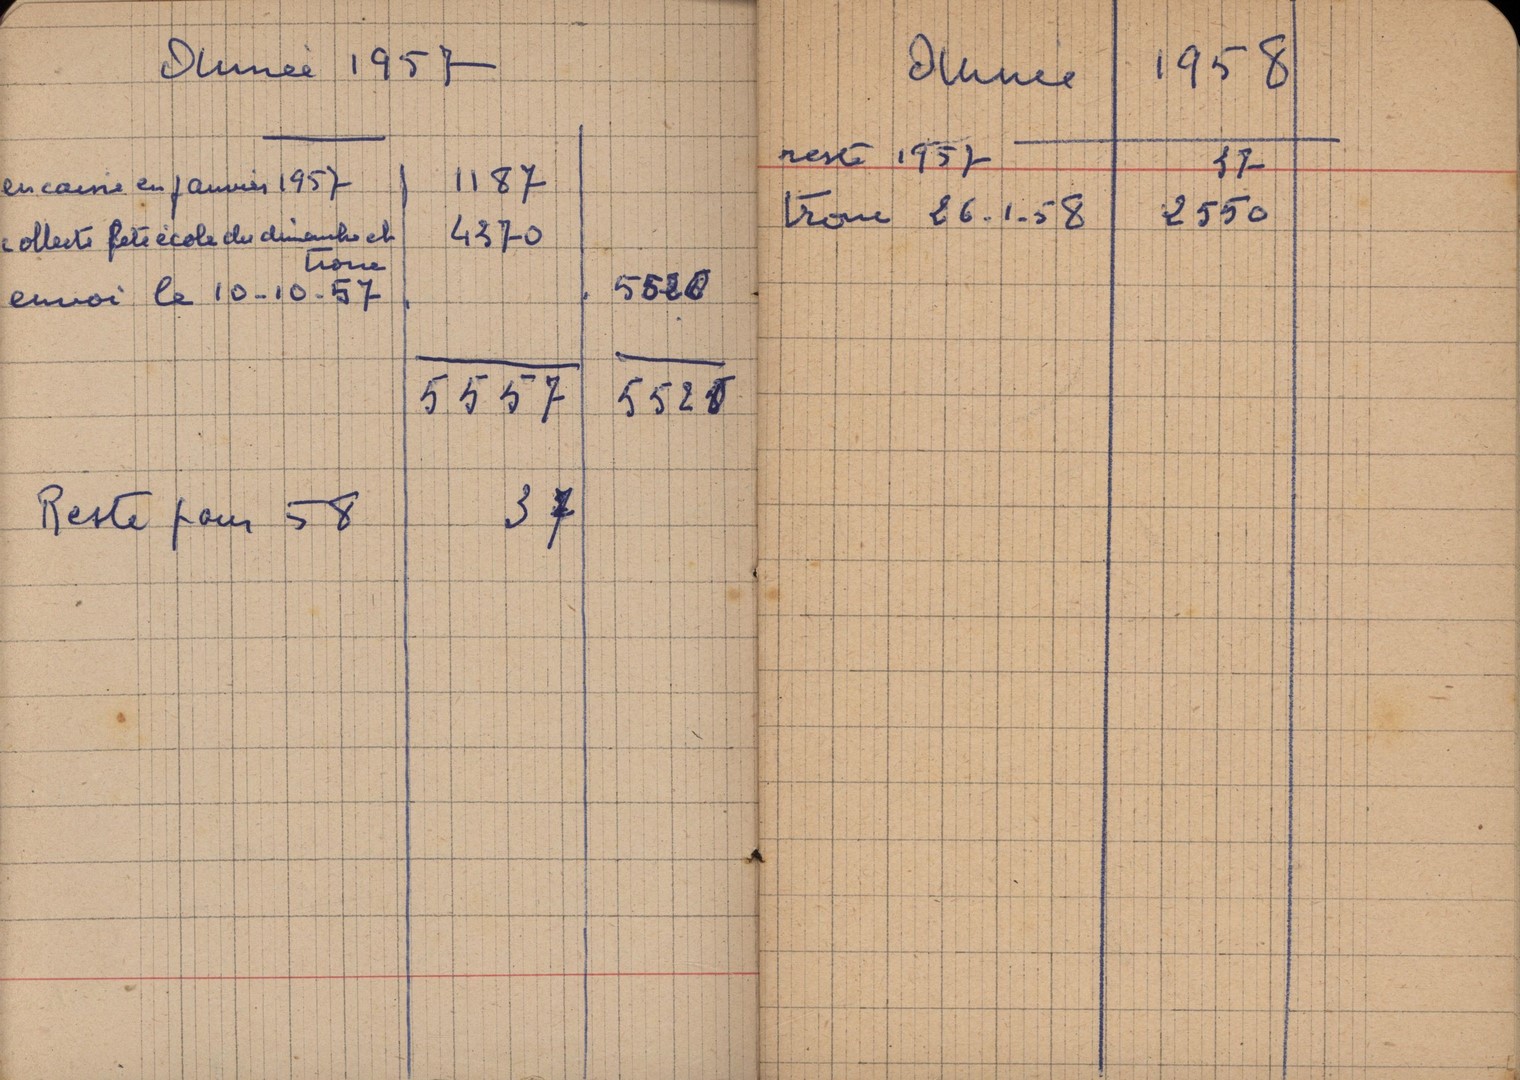 Année 1957
en caisse en janvier 1957 1187
collecte fête école du dimanche et 4370
tronc
envoi le 10-10-57 5520
5557 5520
Reste pour 58 37
Année 1958
reste 1957 37
tronc 26-1-58 2550